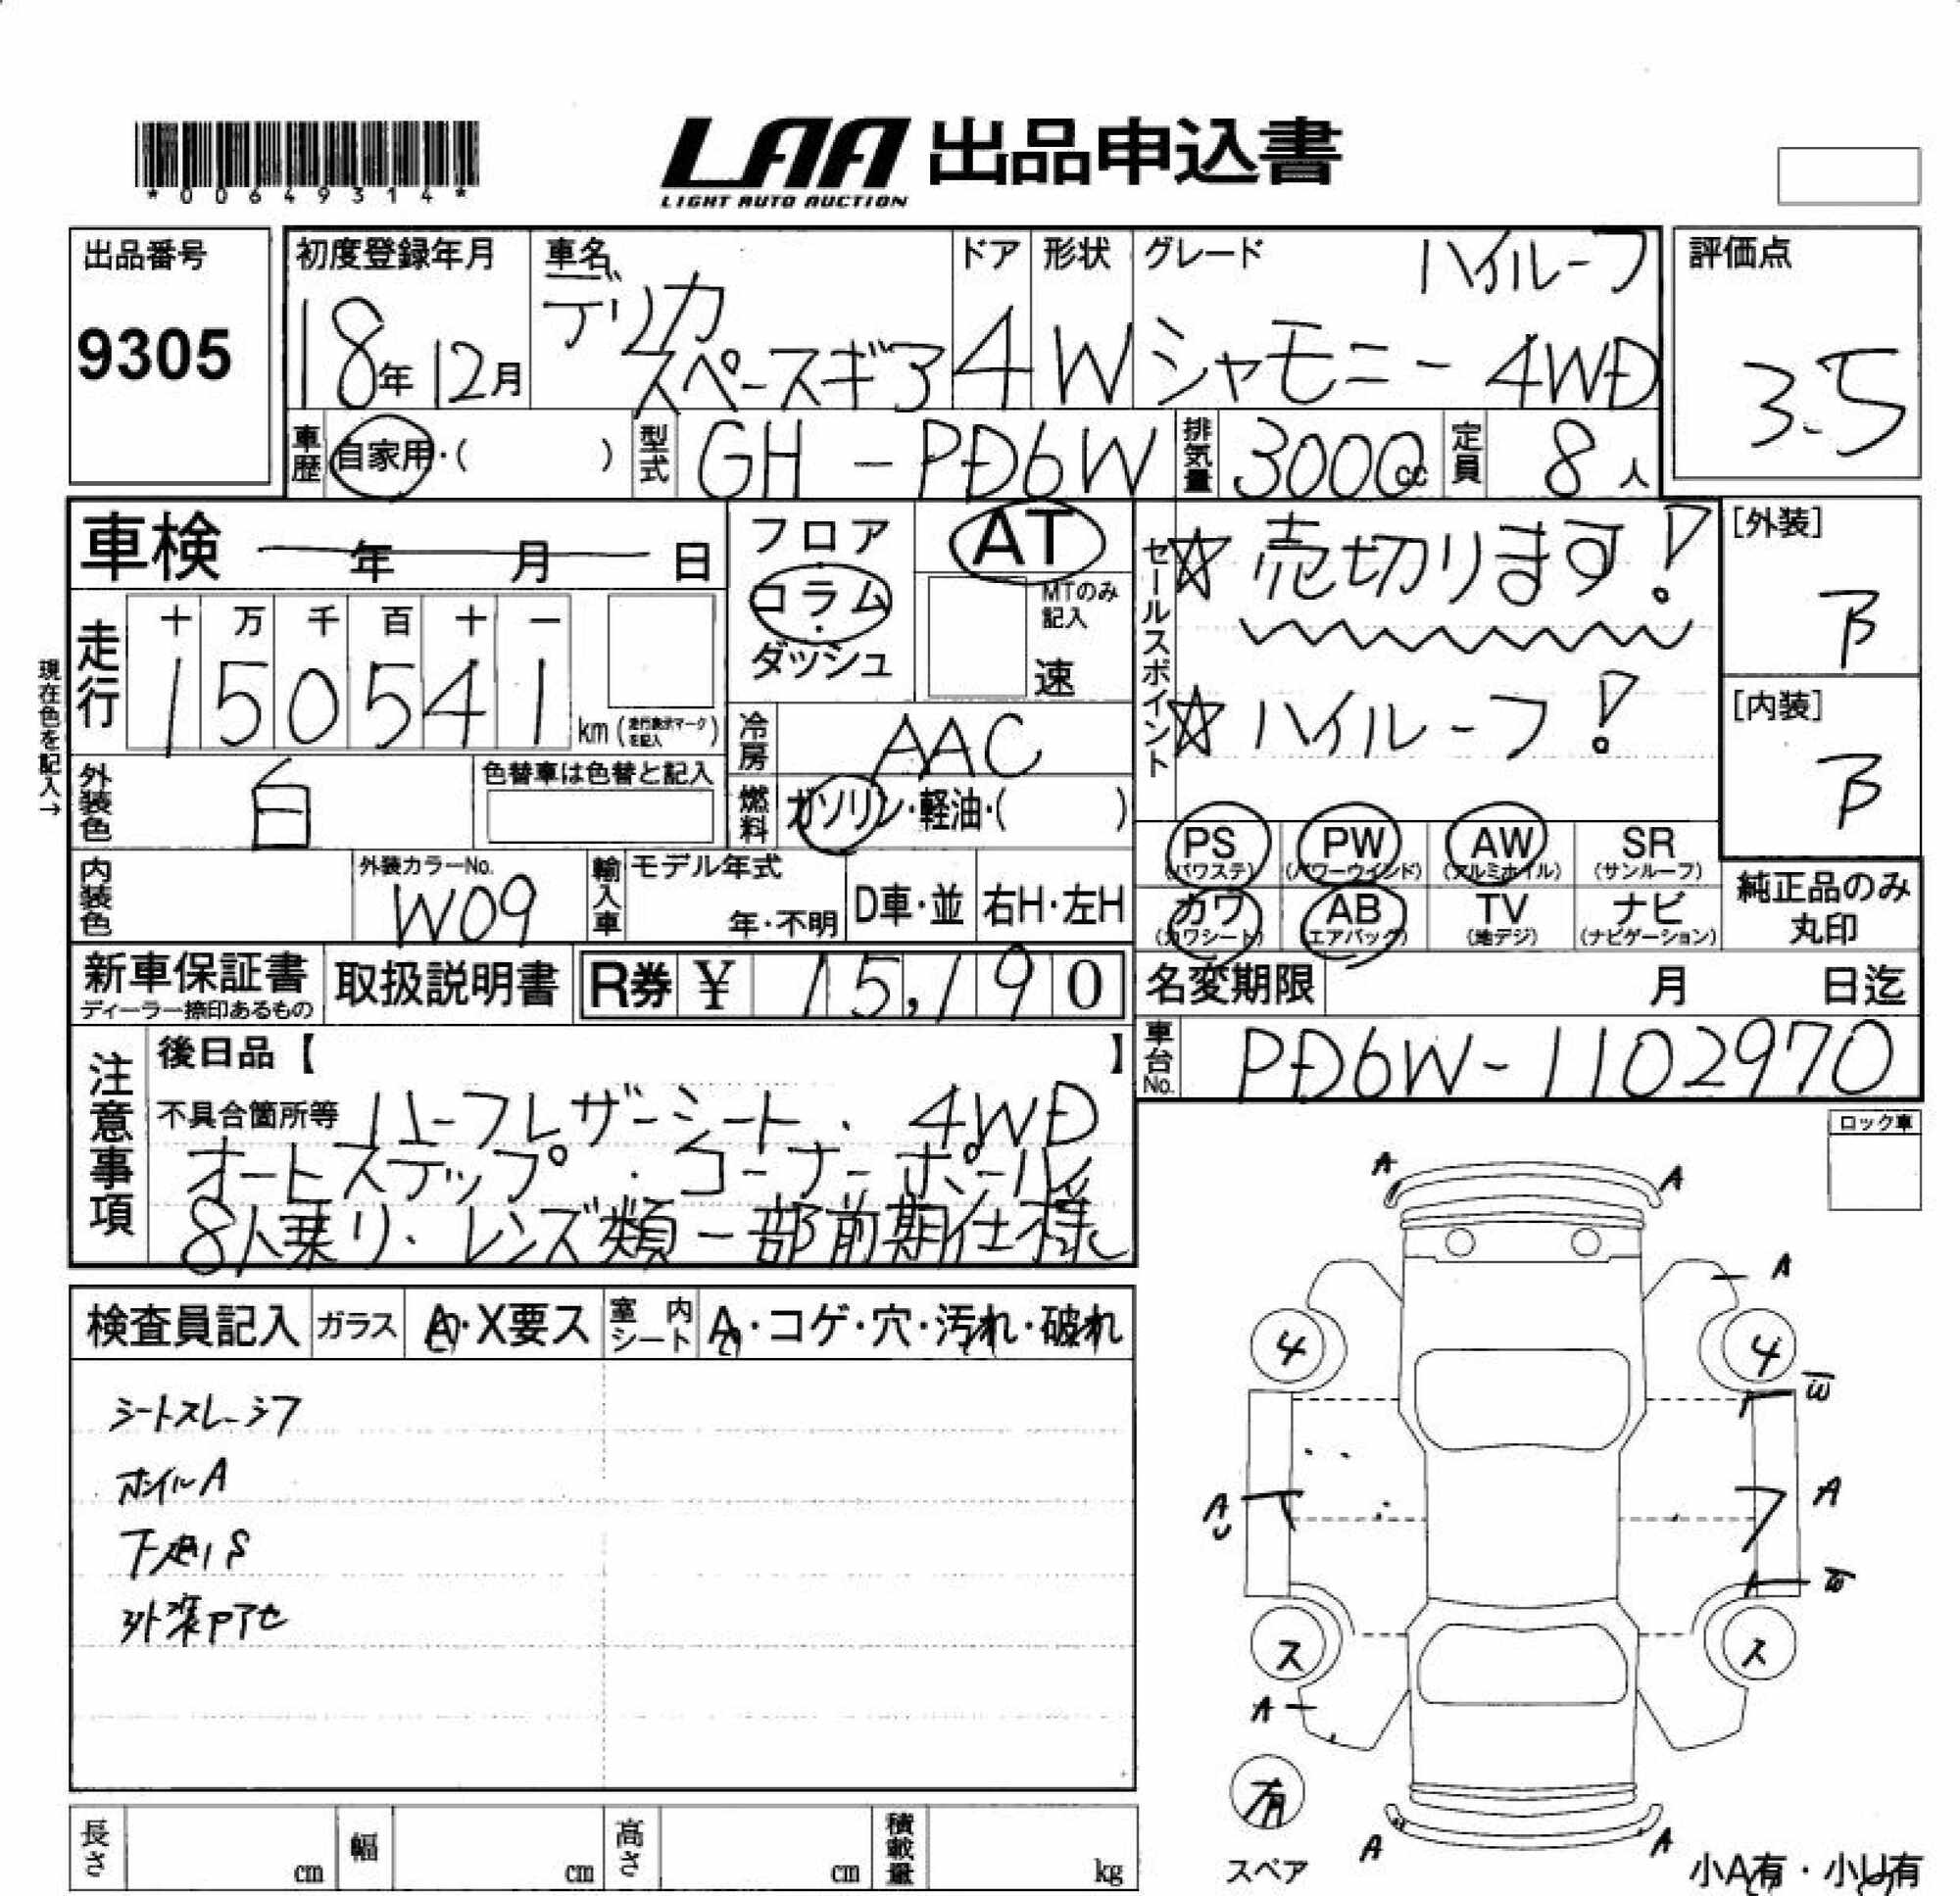 *00649314*
LAA 出品申込書
LIGHT AUTO AUCTION
出品番号
9305
初度登録年月
18年12月
車名
デリカ
スペースギア
ドア
4
形状
W
グレード
ハイルーフ
シャモニー 4WD
評価点
3.5
車歴 自家用・( )
型式 GH-PD6W
排気量 3000cc
定員 8人
車検 年 月 日
フロア
コラム
・
ダッシュ
AT
MTのみ
記入
速
セールスポイント
☆売切ります!
☆ハイルーフ!
[外装]
B
[内装]
B
現在色を記入→
走行
十 万 千 百 十 一
1 5 0 5 4 1
km(走行表示マークを記入)
冷房 AAC
外装色 白
色替車は色替と記入
燃料 ガソリン・軽油・( )
PS
(パワステ)
PW
(パワーウインド)
AW
(アルミホイル)
SR
(サンルーフ)
カワ
(カワシート)
AB
(エアバック)
TV
(地デジ)
ナビ
(ナビゲーション)
純正品のみ
丸印
内装色
外装カラーNo.
W09
輸入車
モデル年式
年・不明
D車・並
右H・左H
新車保証書
ディーラー捺印あるもの
取扱説明書
R券 ¥ 15,190
名変期限 月 日迄
車台No. PD6W-1102970
注意事項
後日品【 】
不具合箇所等 ハーフレザーシート、4WD
オートステップ・コーナーポール
8人乗り、レンズ類一部前期仕様
ロック車
検査員記入
ガラス
A・X要ス
室内
シート
A・コゲ・穴・汚れ・破れ
シートスレ シワ
ホイルA
下廻りS
外装Pアセ
A A
A
4 4
W
A
A
U
W
ス ス
A
有
スペア
A A
小A有・小U有
長さ cm
幅 cm
高さ cm
積載量 kg